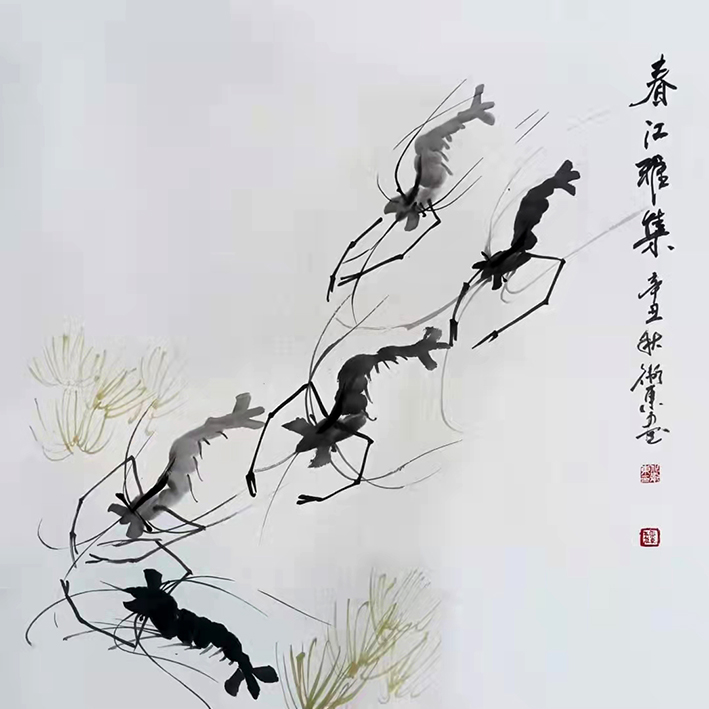 春江雅集
辛丑秋衛東画